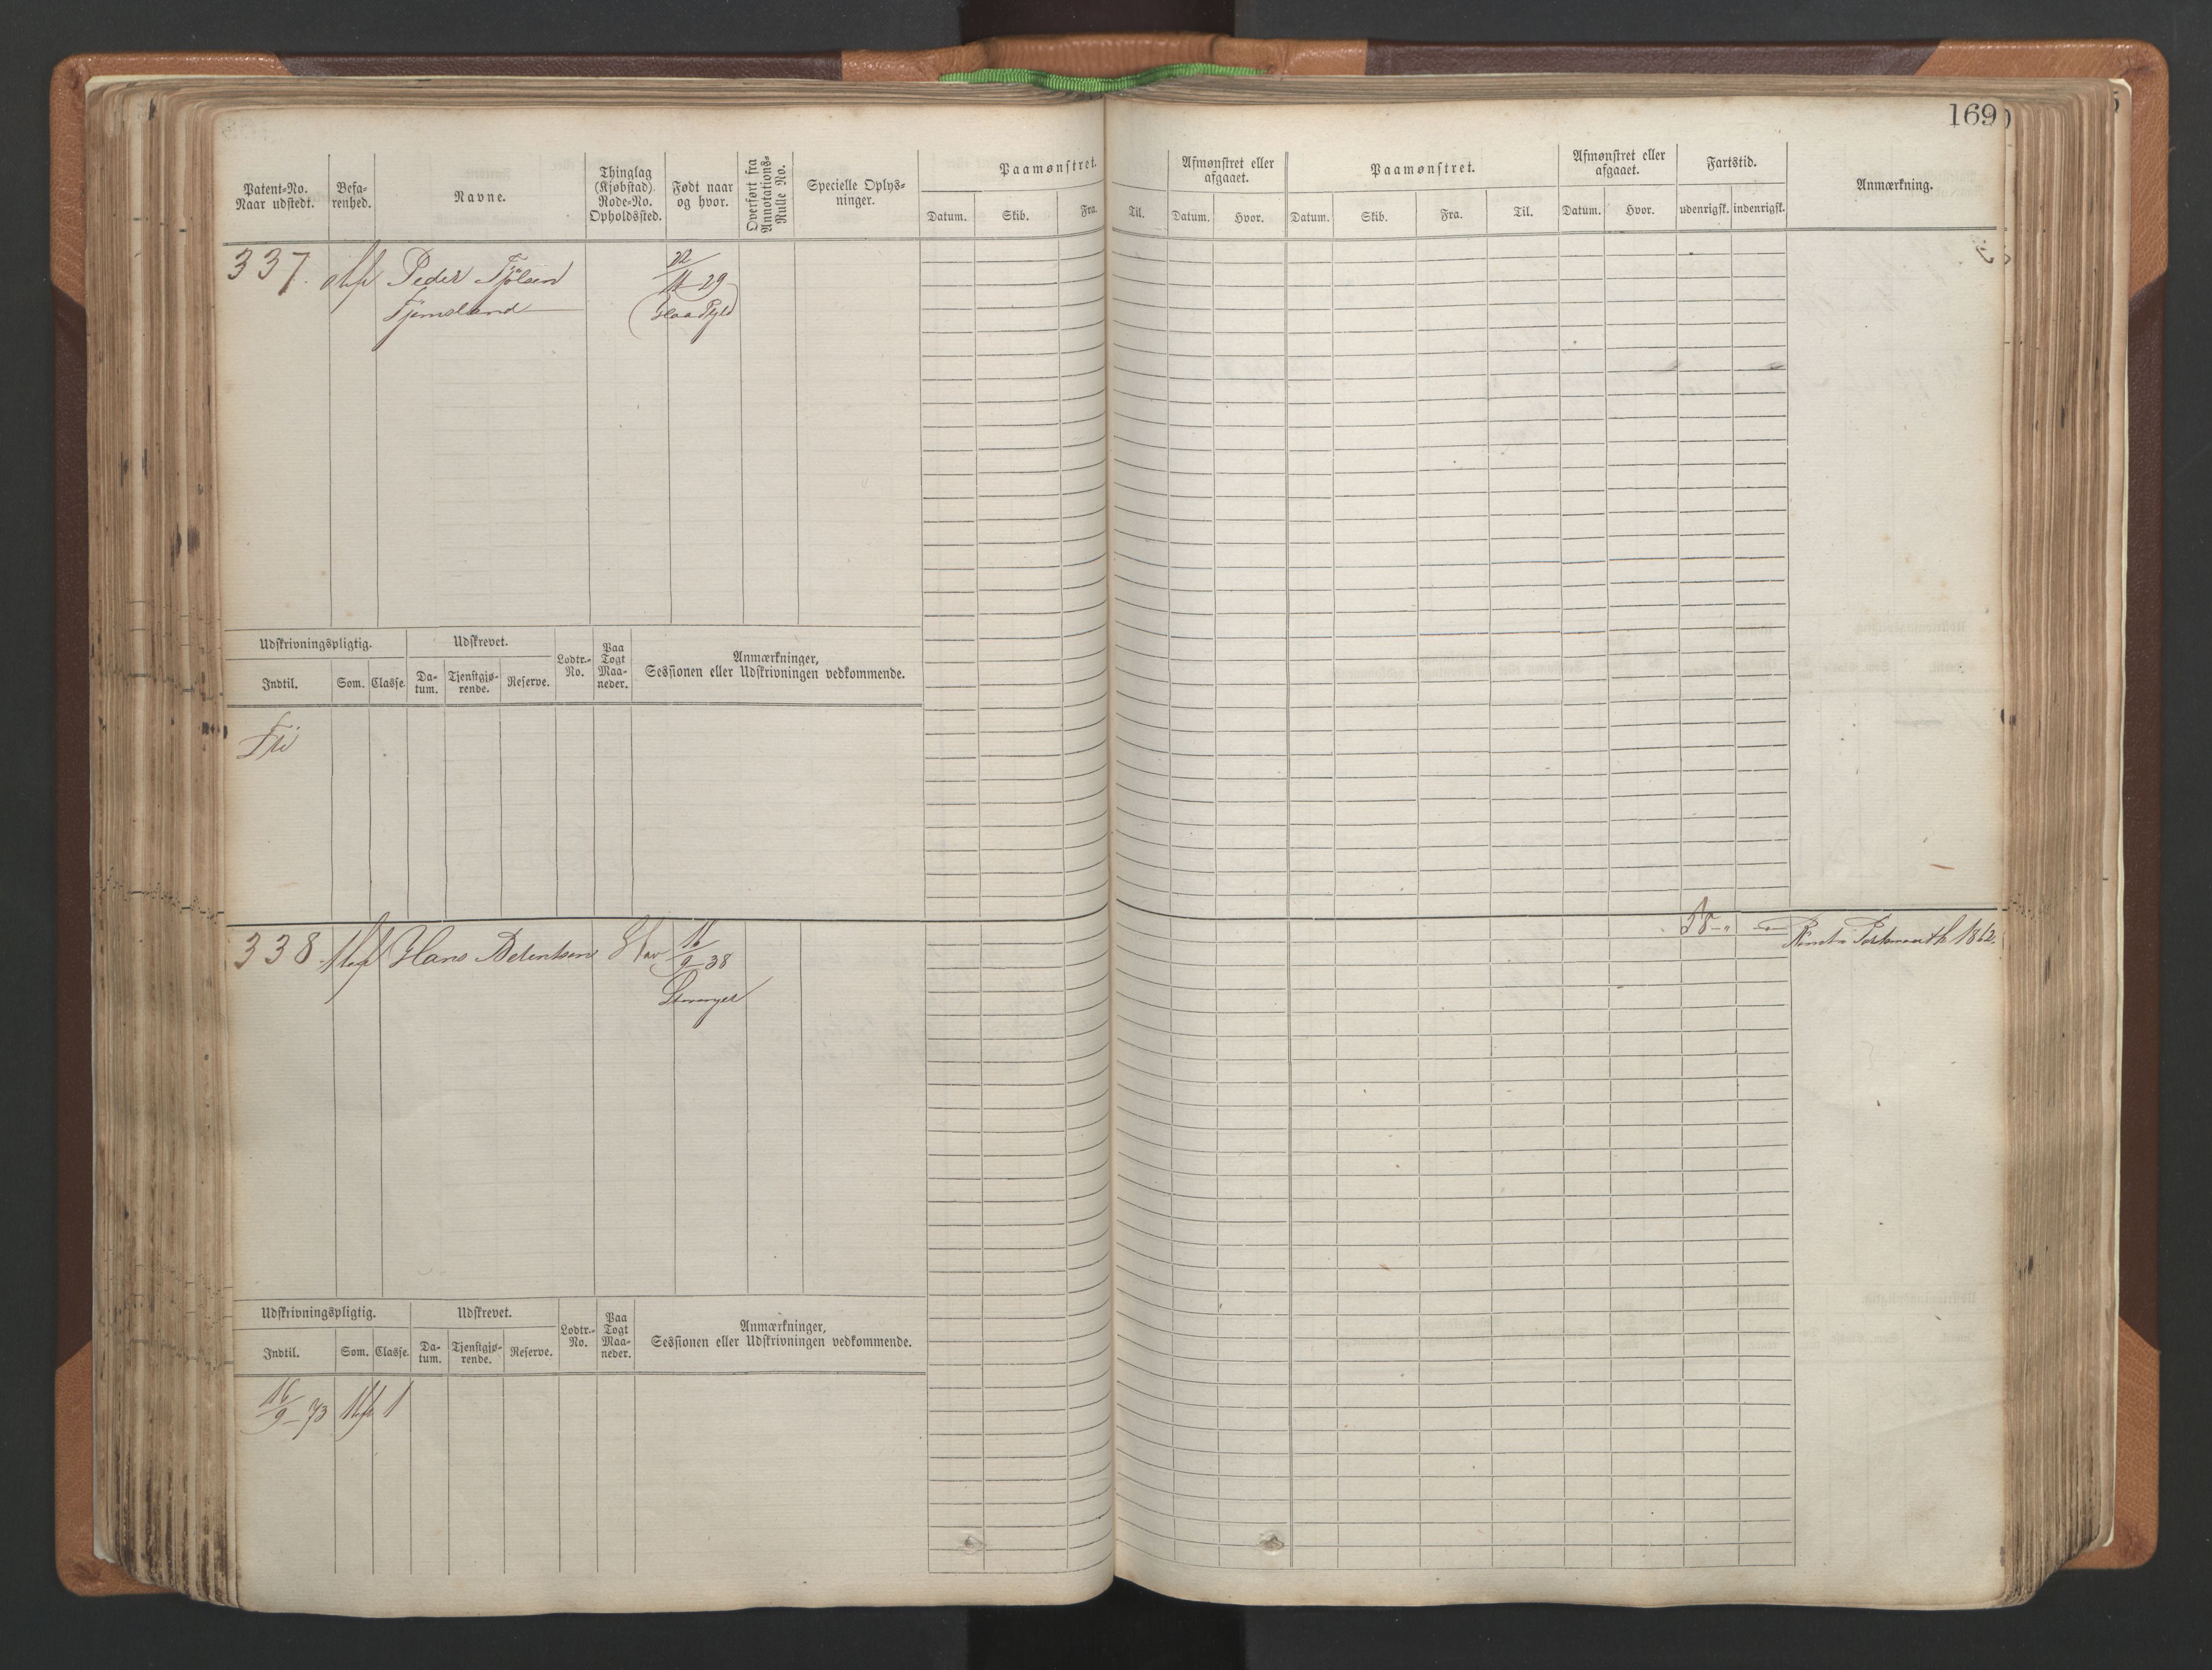 169
Patent-No. Naar udstedt.
Befa-renhed.
Navne.
Thinglag (Kjøbstad) Rode-No. Opholdssted.
Født naar og hvor.
Overført fra Annotations-Rulle No.
Specielle Oplys-ninger.
Paamønstret.
Datum. Skib. Fra.
Til.
Afmønstret eller afgaaet.
Datum. Hvor.
Paamønstret.
Datum. Skib. Fra. Til.
Afmønstret eller afgaaet.
Datum. Hvor.
Fartstid.
udenrigsk. indenrigsk.
Anmærkning.
337. Peder
Tjemsland
22/11 29
Udskrivningspligtig. Udskrevet. Lodtr.-No. Paa Togt Maa-neder. Anmærkninger, Sessionen eller Udskrivningen vedkommende.
Indtil. Som. Classe. Da-tum. Tjenstgjø-rende. Reserve.
Fri
338. Hans Berentsen Stav 16/9 38
Stavanger
Rømt i Portsmouth 1862.
Udskrivningspligtig. Udskrevet. Lodtr.-No. Paa Togt Maa-neder. Anmærkninger, Sessionen eller Udskrivningen vedkommende.
Indtil. Som. Classe. Da-tum. Tjenstgjø-rende. Reserve.
16/9 - 73 1